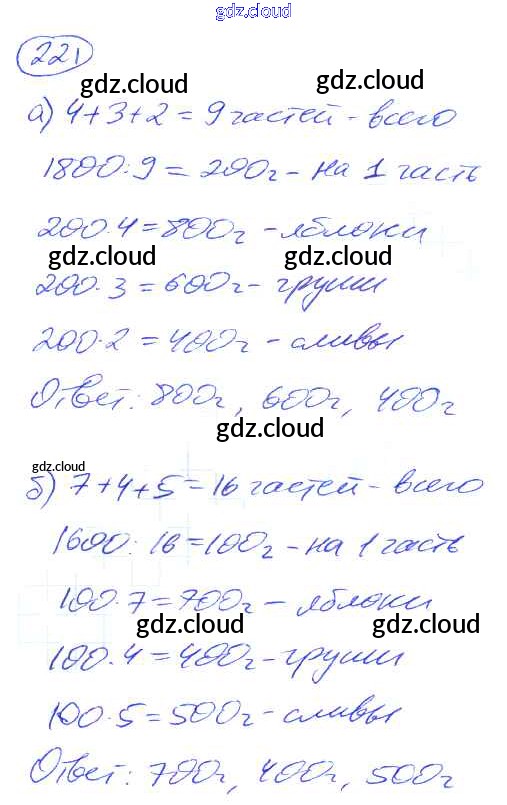 gdz.cloud
221
gdz.cloud gdz.cloud
а) 4+3+2 = 9 частей - всего
1800:9 = 200г - на 1 часть
gdz.cloud gdz.cloud
200·4 = 800г - яблоки
gdz.cloud gdz.cloud
200·3 = 600г - груши
200·2 = 400г - сливы
Ответ: 800г, 600г, 400г
gdz.cloud
gdz.cloud
б) 7+4+5 = 16 частей - всего
1600:16 = 100г - на 1 часть
100·7 = 700г - яблоки
gdz.cloud gdz.cloud
100·4 = 400г - груши
gdz.cloud
100·5 = 500г - сливы
Ответ: 700г, 400г, 500г